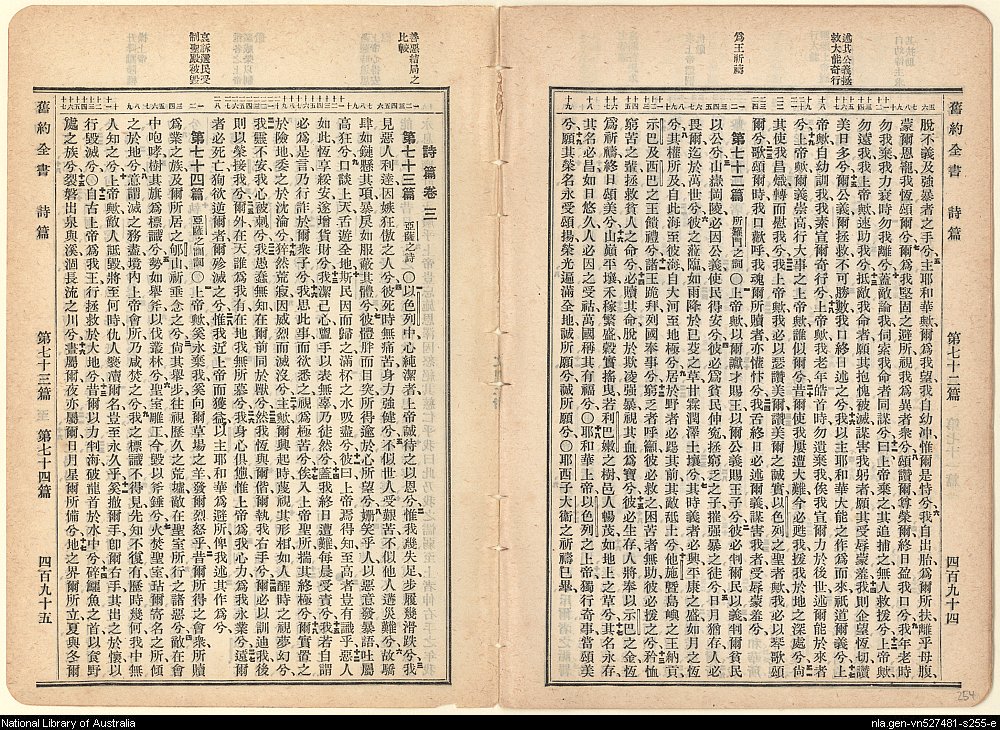 述其公義拯
救大能奇行
為王祈禱
舊約全書 詩篇 第七十二篇 四百九十四
脫不義及強暴者之手兮主耶和華歟爾為我望我自幼沖惟爾是恃兮我自出胎為爾所扶離乎母腹
蒙爾恩寵我恆頌爾兮爾為我堅固之避所視我為異者衆兮頌讚爾尊榮爾終日盈我口兮我年老時
勿棄我我力衰時勿我離兮蓋敵論我伺索我命者同謀兮曰上帝棄之其追捕之無人救援兮上帝歟
勿遠我我上帝歟速助我兮抵敵我命者願其抱愧被滅謀害我躬者願其受辱蒙羞兮我則企望恆切讚
美日多兮爾公義爾拯救不可勝數我口終日述之兮我以主耶和華大能之作為而來祇道爾義兮上
帝歟自幼訓我我素宣爾奇行兮上帝歟我老年皓首時勿遺棄我俟我宣爾力於後世述爾能於來者
兮上帝歟爾義崇高行大事之上帝歟誰似爾兮昔爾使我屢遭大難今必甦我援我於地之深處兮尙
其使我昌熾轉而慰我兮我上帝歟我必以瑟讚美爾讚美爾之誠實以色列之聖者歟我必以琴歌頌
爾兮歌頌爾時我口歡呼我魂爾所贖者亦惟忭兮我舌終日必述爾義謀害我者受辱蒙羞兮
第七十二篇 所羅門之詞 上帝歟以爾讞才賜王以爾公義賜王子兮彼必判爾民以義判爾貧民
以公兮山嶽岡陵必因公義使民得安兮彼必為貧民伸冤拯窮乏之子摧强暴之徒兮日月猶存人必
畏爾迄於萬世兮彼之涖臨如雨降於已芟之草甘霖潤澤土壤兮其時義者必興平康之盛如月之恆
兮其權所及自此海至彼海自大河至地極兮居於野者必跽其前其敵舐土兮他施曁島嶼之王納貢
示巴及西巴之王饋禮兮諸王跪拜列國奉事兮窮乏者呼籲彼必救之困苦者無助彼必援之兮矜恤
窮苦之輩拯救貧人之命兮必贖其命脫於欺凌强暴視其血為寶兮彼必生存人將奉以示巴之金恆
為祈禱終日頌美兮山巔平壤禾稼繁盛穀實搖曳若利巴嫩之樹邑人暢茂如地上之草兮其名永存
其名必昌如日悠久人必因之受福萬國稱其有福兮 耶和華上帝以色列之上帝獨行奇事當頌美
兮願其榮名永受頌揚榮光遍滿全地誠所願兮誠所願兮 耶西子大衞之祈禱已畢
善惡結局之
比較
哀訴選民受
制聖殿被毁
詩篇卷三
第七十三篇 亞薩之詩 以色列中心純潔者上帝誠待之以恩兮惟我幾失足步履幾滑跌兮我
見惡人利達因嫉狂傲之人兮彼死時無痛苦身力強健兮不似世人受艱苦不似他人遘災難兮故驕
肆如鏈懸其項暴戾如服蔽其體兮彼體胖而目突所得逾於心所望兮姍笑乎人以惡意發暴語吐屬
高狂兮口謗上天舌遊全地斯民因而歸之滿杯之水吸盡兮彼曰上帝焉得知至高者豈有識乎惡人
如此恆享綏安遂增貨財兮我潔己心盥手以表無辜乃徒然兮蓋我終日遭難每晨受責兮我若自謂
必為是言乃行詐於爾衆子兮我思此事而欲悉之視為極苦兮俟入上帝聖所揣其終極兮爾實置之
於險地委之於沈淪兮猝然荒寂因威烈而滅沒兮主歟爾興起時蔑視其形相如人醒時之視夢幻兮
我魂不安我心被刺兮我愚蠢無知在爾前同於獸兮然我恆與爾偕爾執我右手兮爾必以訓迪我後
則以榮接我兮爾外在天誰為我有在地我無所慕兮我身心俱憊惟上帝為我心力為我永業兮遠爾
者必死亡狥欲逆爾者爾殄滅之兮惟我近上帝而獲益以主耶和華為避所俾我述其作為兮
第七十四篇 亞薩之訓詞 上帝歟奚永棄我奚向爾草場之羊發爾烈怒乎昔爾所得之會衆所贖
為業之族及爾所居之郇山祈垂念之兮尙其舉步往視歷久之荒墟敵在聖室所行之諸惡兮敵在會
中咆哮樹其旗為標識兮勢如舉斧以伐叢林兮聖室雕工今毁以斧錘兮火焚聖室玷爾寄名之所傾
之於地兮意謂滅之務盡境內上帝會所乃咸焚之兮我之標識不得見先知不復有歷時幾何我中無
人知之兮上帝歟敵人詆毀將至何時仇人褻瀆爾名豈至永久乎奚撤爾手卽爾右手其出之於懷以
行毀滅兮 自古上帝為我王行拯救於大地兮昔爾以力判海破龍首於水中兮碎鱷魚之首以食野
處之族兮裂磐出泉與溪涸長流之川兮晝屬爾夜亦屬爾日月星爾所備兮地之界爾所立夏與冬爾
舊約全書 詩篇 第七十三篇 至 第七十四篇 四百九十五
254
National Library of Australia
nla.gen-vn527481-s255-e